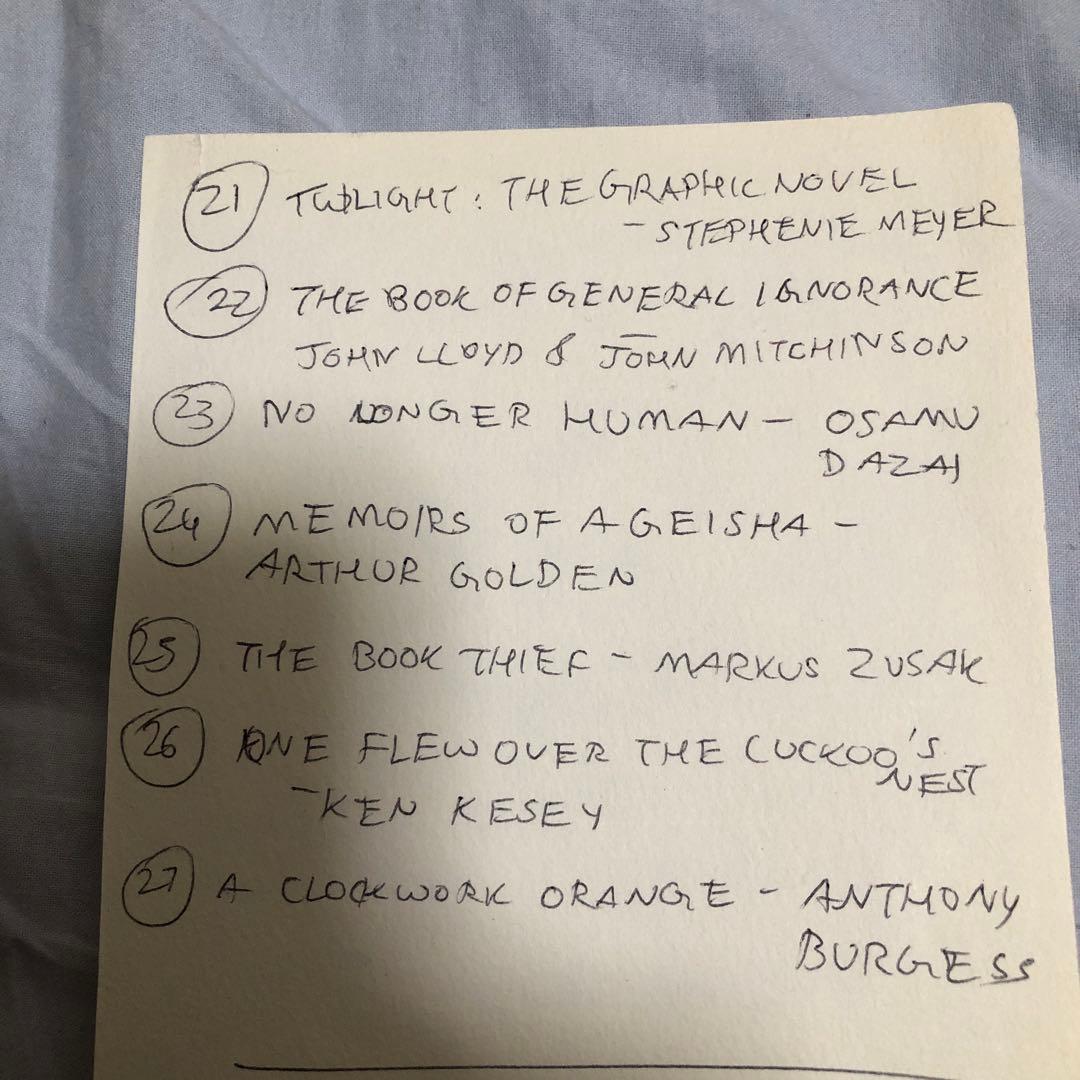 21 TWILIGHT: THE GRAPHIC NOVEL
- STEPHENIE MEYER
22 THE BOOK OF GENERAL IGNORANCE
JOHN LLOYD & JOHN MITCHINSON
23 NO LONGER HUMAN - OSAMU
DAZAI
24 MEMOIRS OF A GEISHA -
ARTHUR GOLDEN
25 THE BOOK THIEF - MARKUS ZUSAK
26 ONE FLEW OVER THE CUCKOO'S
NEST
- KEN KESEY
27 A CLOCKWORK ORANGE - ANTHONY
BURGESS